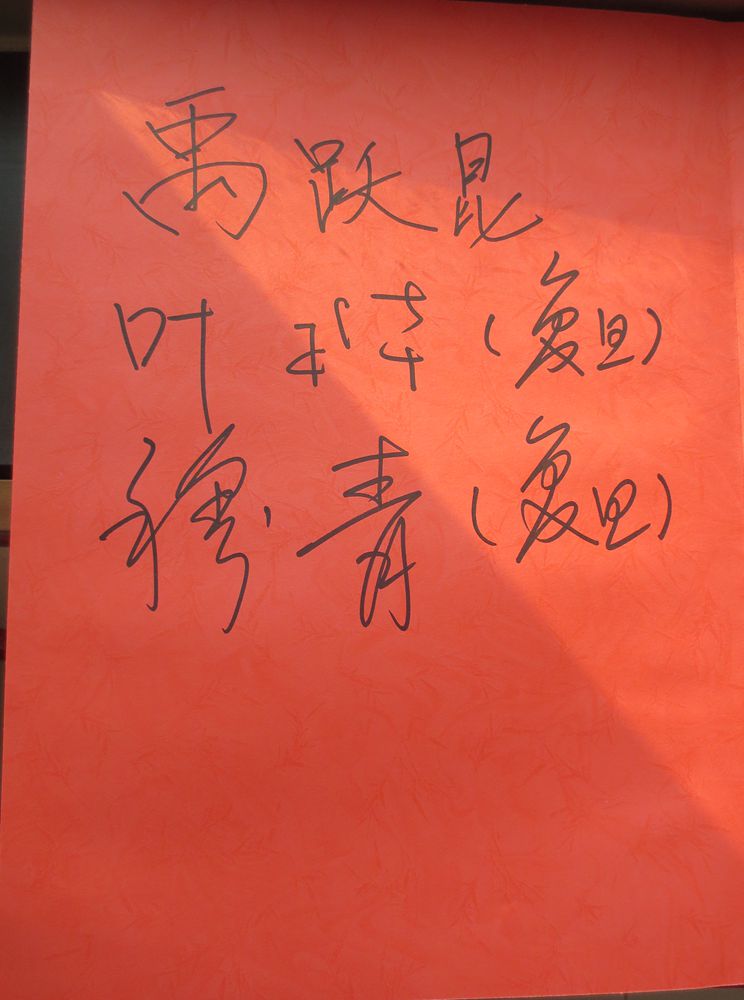 禹跃昆
叶玮(复旦)
穆青(复旦)